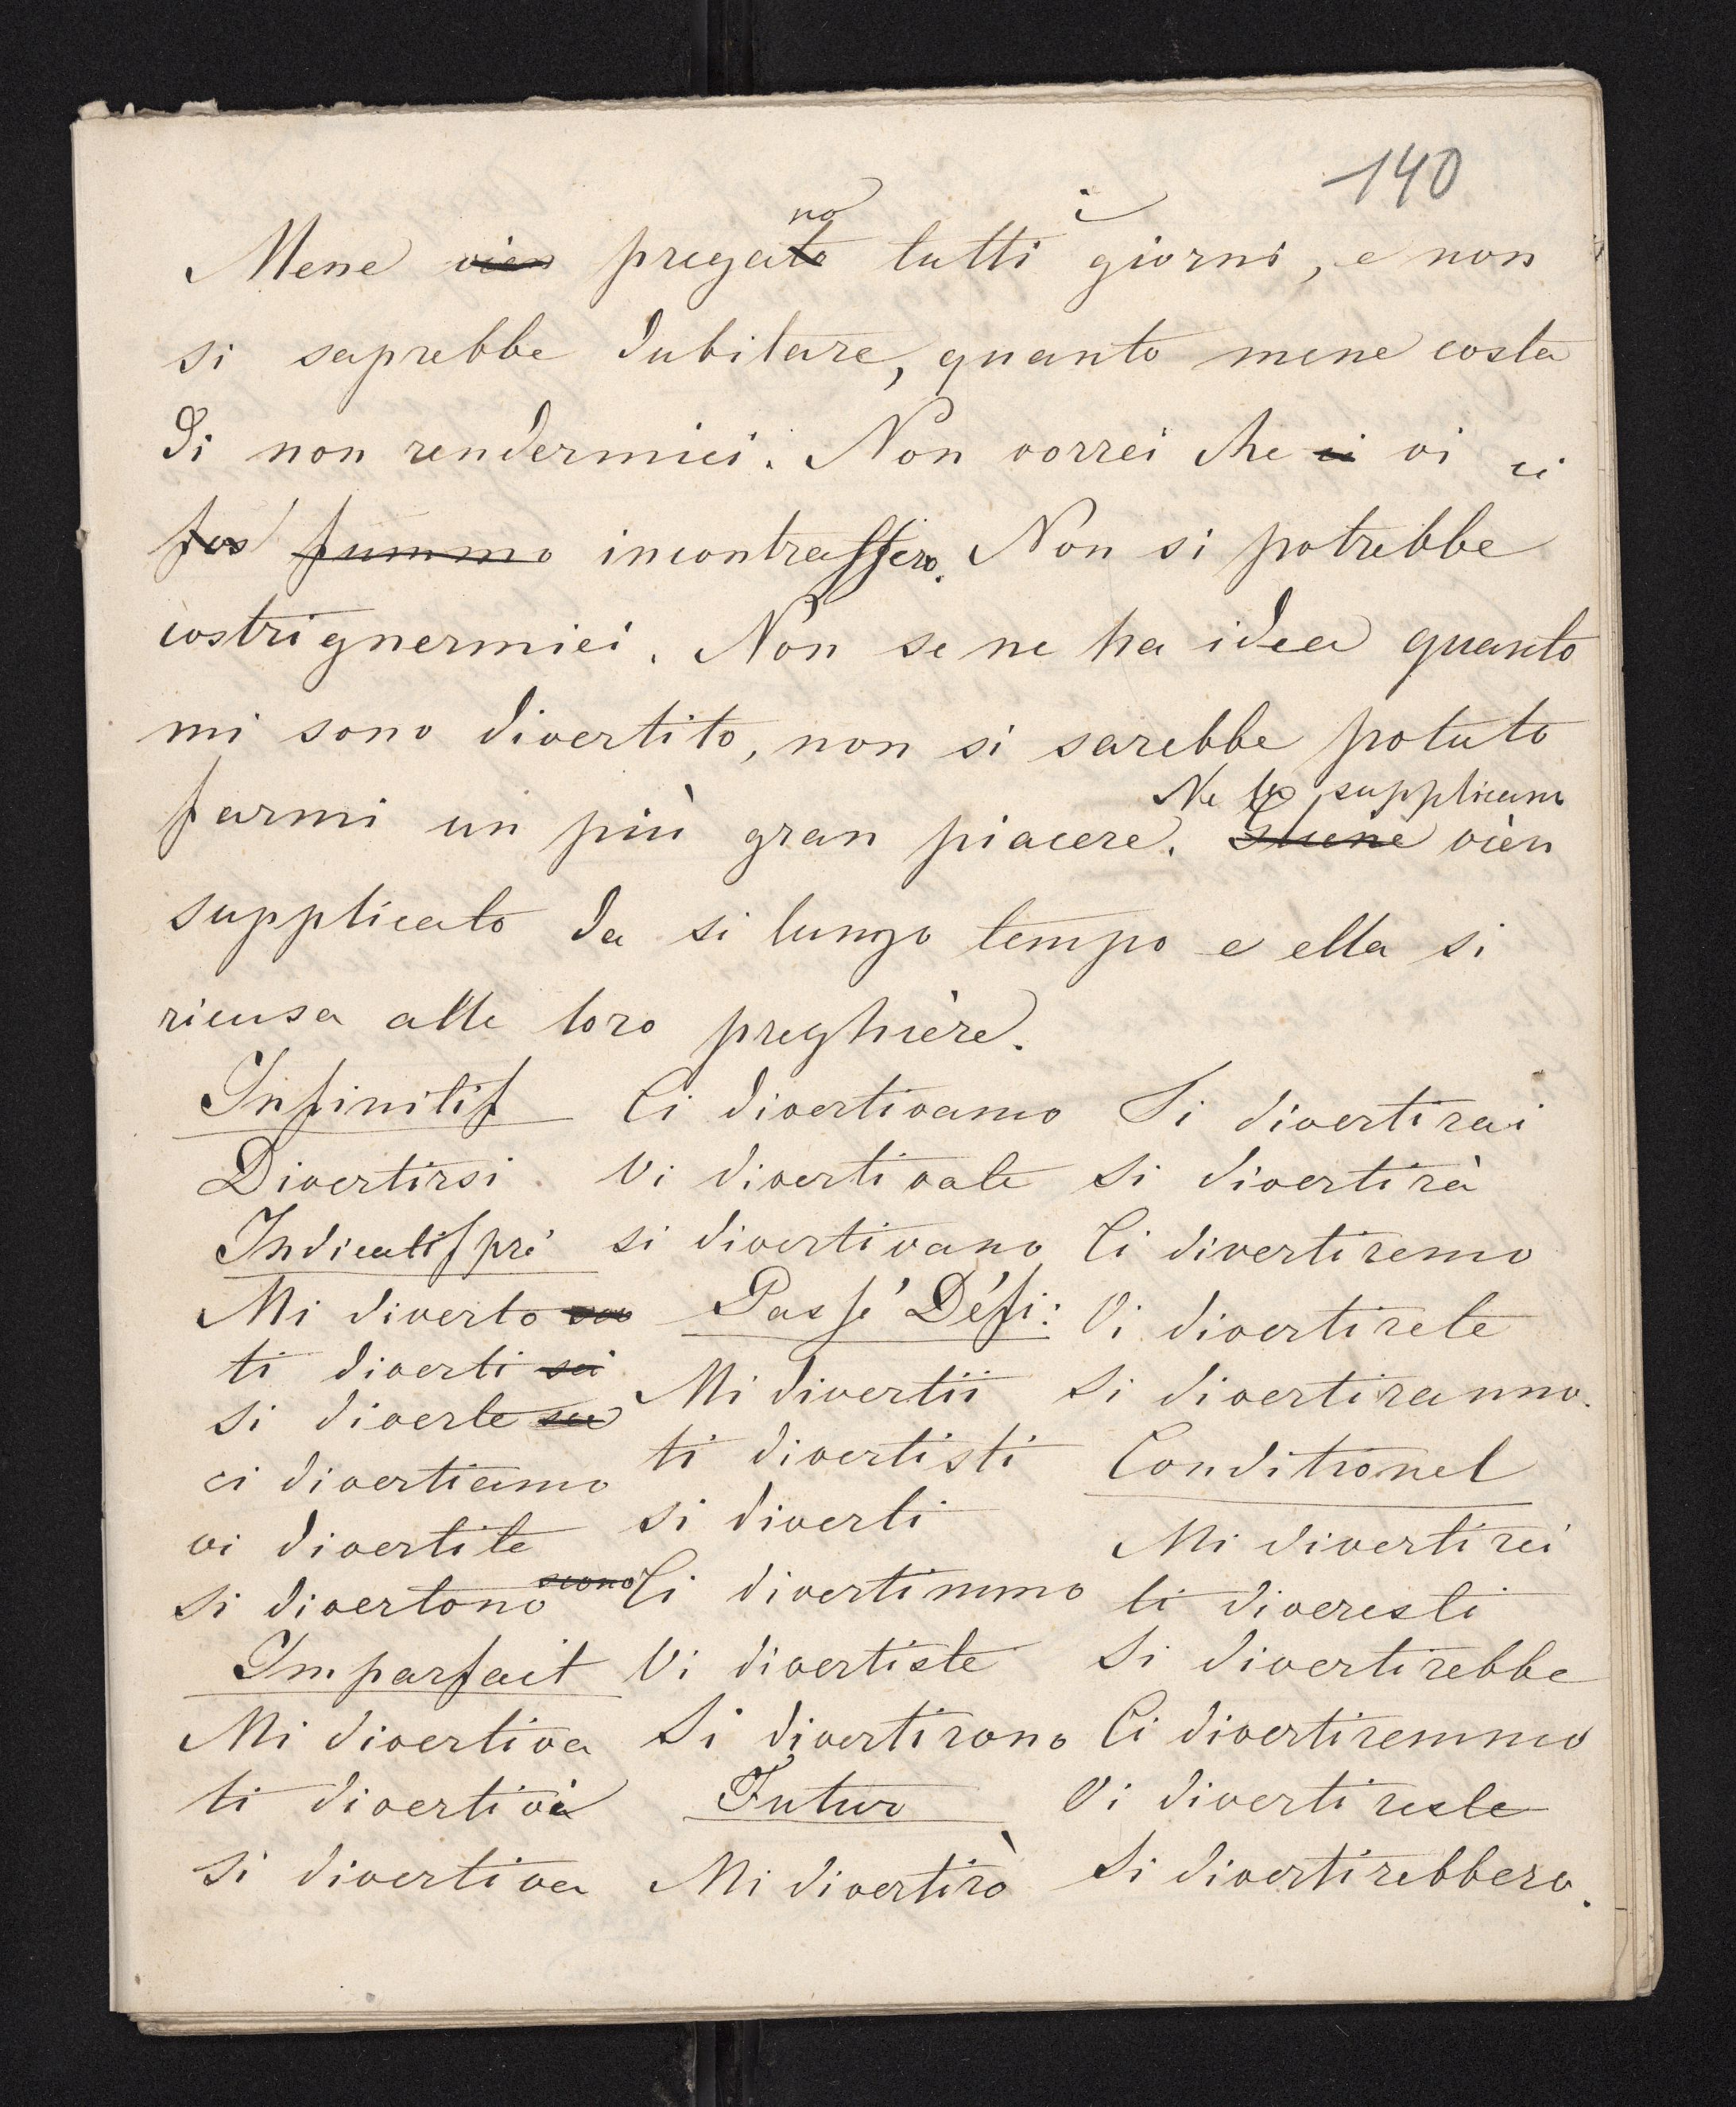 140
Mene vien pregato no tutti i giorni, e non
si saprebbe dubitare, quanto mene costa
di non rendermici. Non vorrei che ci vi ci
fos fummo incontrassero. Non si potrebbe
costrignermici. Non se ne ha idea quanto
mi sono divertito, non si sarebbe potuto
farmi un più gran piacere. vien
Ne la supplicano
supplicato da si lungo tempo e ella si
ricusa alle loro preghière.
Infinitif
Divertirsi
Indicatif pré
Mi diverto
ti diverti sci
si diverte sce
ci divertiamo
vi divertite
si divertono scono
Imparfait
Mi divertiva
ti divertivi
si divertiva
Ci divertivamo
Vi divertivate
si divertivano
Passé Défi:
Mi divertii
ti divertisti
si diverti
Ci divertimmo
Vi divertiste
Si divertirono
Futur
Mi divertirò
Ti divertirai
si divertirà
Ci divertiremo
Vi divertirete
si divertiranno.
Conditionel
Mi divertirei
ti diveresti
Si divertirebbe
Ci divertiremmo
Vi divertireste
Si divertirebbero.